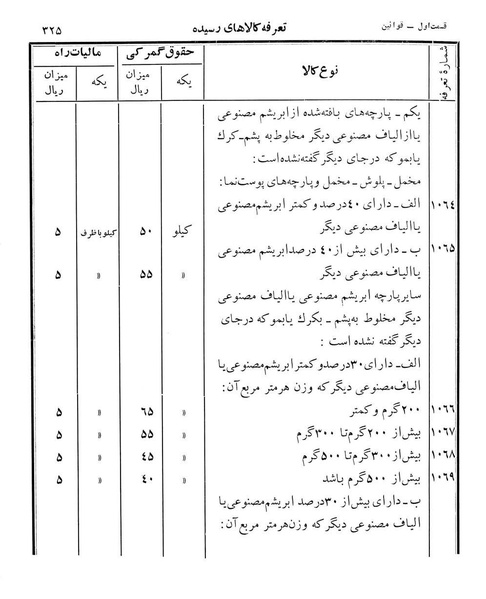 قسمت اول – قوانین تعرفه کالاهای رسیده ۳۲۵
شمارهٔ تعرفه نوع کالا حقوق گمرکی مالیات راه
یکه میزان ریال یکه میزان ریال
یکم – پارچه‌های بافته‌شده از ابریشم مصنوعی
یا از الیاف مصنوعی دیگر مخلوط به پشم – کرک
یا بمو که در جای دیگر گفته نشده است:
مخمل – پلوش – مخمل و پارچه‌های پوست‌نما:
۱۰۶۴ الف – دارای ۴۰ درصد و کمتر ابریشم مصنوعی
یا الیاف مصنوعی دیگر کیلو ۵۰ کیلو با ظرف ۵
۱۰۶۵ ب – دارای بیش از ۴۰ درصد ابریشم مصنوعی
یا الیاف مصنوعی دیگر » ۵۵ » ۵
سایر پارچه ابریشم مصنوعی یا الیاف مصنوعی
دیگر مخلوط به پشم – بکرك یا بمو که در جای
دیگر گفته نشده است :
الف – دارای ۳۰ درصد و کمتر ابریشم مصنوعی یا
الیاف مصنوعی دیگر که وزن هر متر مربع آن:
۱۰۶۶ ۲۰۰ گرم و کمتر » ۶۵ » ۵
۱۰۶۷ بیش از ۲۰۰ گرم تا ۳۰۰ گرم » ۵۵ » ۵
۱۰۶۸ بیش از ۳۰۰ گرم تا ۵۰۰ گرم » ۴۵ » ۵
۱۰۶۹ بیش از ۵۰۰ گرم باشد » ۴۰ » ۵
ب – دارای بیش از ۳۰ درصد ابریشم مصنوعی یا
الیاف مصنوعی دیگر که وزن هر متر مربع آن: